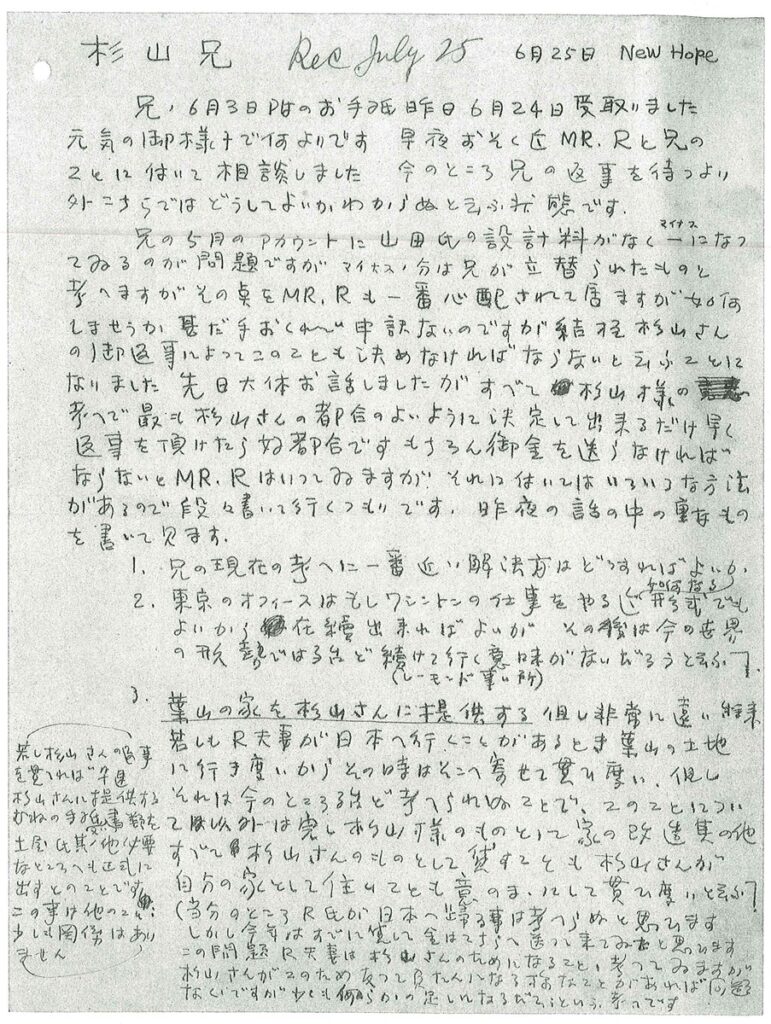 杉山兄 Rec July 25 6月25日 New Hope
兄ノ6月3日附のお手紙昨日6月24日受取りました
元気の御様子で何よりです 早夜おそく迄MR.Rと兄の
ことに付いて相談しました 今のところ兄の返事を待つより
外こちらではどうしてよいかわからぬと云ふ状態です.
兄の5月のアカウントに山田氏の設計料がなく一になつ
マイナス
てゐるのが問題ですがマイナスノ分は兄が立替られたものと
考へますがその点をMR.Rも一番心配されて居ますが如何
しませうか 甚だ手おくれで申訳ないのですが結極杉山さん
の御返事によつてこのことも決めなければならないと云ふことに
なりました 先日大体お話しましたがすべて杉山様の
考へで最も杉山さんの都合のよいように決定して出来るだけ早く
返事を頂けたら好都合です もちろん御金を送らなければ
ならないとMR.Rはいつてゐますが それに付いてはいろいろな方法
があるので段々書いて行くつもりです. 昨夜の話の中の重なもの
を書いて見ます.
1. 兄の現在の考へに一番近い解決方はどうすればよいか
2. 東京のオフィースはもしワシントンの仕事をやるなら形式でも
如何なる
よいから存続出来ればよいが その後は今の世界
の形勢では殆ど続けて行く意味がないだろうと云ふ
(レーモンド事ム所)
3. 葉山の家を杉山さんに提供する 但し非常に遠い将来
若しもR夫妻が日本へ行くことがあるとき葉山の土地
に行き度いからその時はそこへ寄せて貰ひ度い. 但し
それは今のところ殆ど考へられぬことで、このことについ
て以外は完し杉山様のものとして家の改造其の他
すべて杉山さんのものとして貸すことも杉山さんが
自分の家として住むことも意のまゝにして貰ひ度いと云ふ
(当分のところR氏が日本へ帰る事は考へらぬと思ひます
しかし今年はすでに貸して金はこちらへ送つて来てゐると思ひます
この問題R夫妻は杉山さんのためになること、考つてゐますが
杉山さんがこのため反つて負たんになる様なことがあれば問題
なくいですが少くも何らかの足しになるだろうといふ考へです
若し杉山さんの返事
を貰へれば早速
杉山さんに提供する
むねの手紙書類を
土屋氏其ノ他必要
なところへも正式に
出すとのことです
この事は他のことに
少しも関係はあり
ません